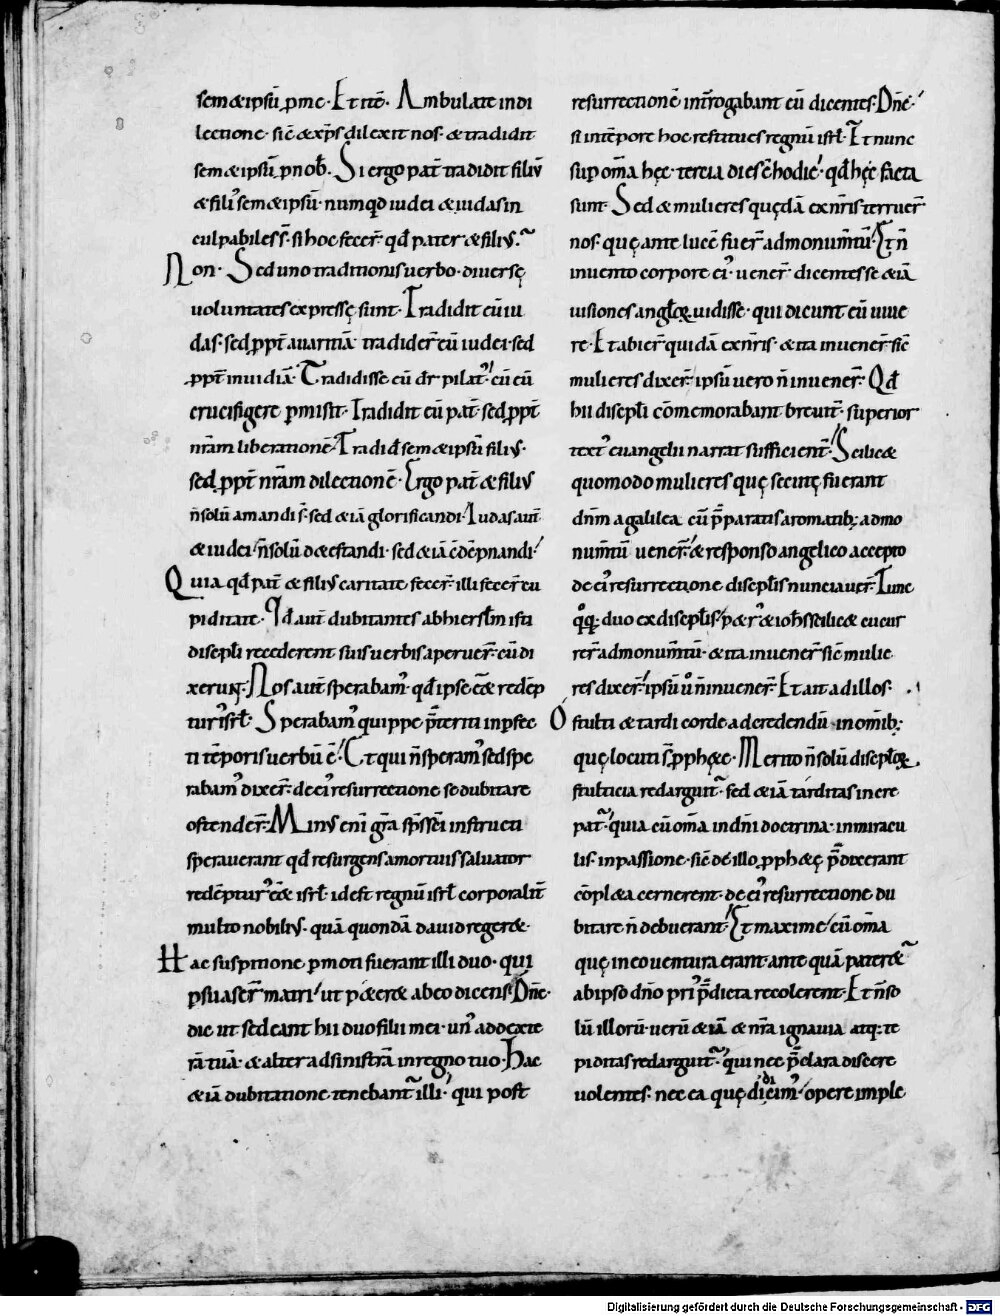 sem&ipsū ꝓme· Et itē· Ambulate indi
lectione· sic̄ & xp̄s dilexit nos· & tradidit
sem&ipsū ꝓ nob̄· Si ergo pat̄ tradidit filiū
& filiꝰ sem&ipsū· numqd iudei & iudas in
culpabiles s̄· si hoc fecer̄· qd̄ pater & filiꝰ·
Non· Sed uno traditionis uerbo· diuersę
uoluntates expressę sunt· Tradidit eū iu
das· sed ꝓpt̄ auaritiā· tradider̄ eū iudei· sed
ꝓpt̄ inuidiā· Tradidisse eū dr̄ pilatꝰ· cū eū
crucifigere ꝑmisit· Tradidit eū pat̄· sed ꝓpt̄
nr̄am liberationē· Tradid̄ sem&ipsū filiꝰ·
sed ꝓpt̄ nr̄am dilectionē· Ergo pat̄ & filiꝰ
n̄ solū amandi s̄· sed & iā glorificandi· Iudas aut̄
& iudei· n̄ solū d&estandi· sed & iā cōdēpnandi·
Quia qd̄ pat̄ & filiꝰ caritate fecer̄· illi fecer̄ cu
piditate· Qd̄ aut̄ dubitantes ab hierslm̄ isti
discipl̄i recederent suis uerbis aperuer̄· cū di
xerunt· Nos aut̄ sperabamꝰ· qd̄ ipse eēt redēp
turꝰ isrl̄· Sperabamꝰ quippe p̄teriti inꝑfec
ti tēporis uerbū ē· Et qui n̄ speramꝰ sed spe
rabamꝰ dixer̄· de eiꝰ resurrectione se dubitare
ostender̄· Minꝰ eni gr̄a sp̄s sc̄i instructi
sperauerant qd̄ resurgens a mortuis saluator
redēpturꝰ eēt isrl̄· id est regnū isrl̄ corporalit̄
multo nobiliꝰ· quā quondā dauid reger&·
Hac suspitione ꝑmoti fuerant illi duo· qui
ꝑsuaser̄ matri· ut p&er& ab eo dicens· Dn̄e·
dic ut sedeant hii duo filii mei· unꝰ ad dexte
rā tuā· & alter ad sinistrā in regno tuo· Hac
& iā dubitatione tenebant̄ illi· qui post
resurrectionē int̄rogabant eū dicentes· Dn̄e·
si in tēpore hoc restitues regnū isrl̄· Et nunc
sup om̄a hęc· tercia dies ē hodie· qd̄ hęc facta
sunt· Sed & mulieres quędā ex nr̄is terruer̄
nos· quę ante lucē fuer̄ ad monum̄tū· Et n̄
inuento corpore eiꝰ· uener̄ dicentes se & iā
uisiones angl̄oꝝ uidisse· qui dicunt eū uiue
re· Et abier̄ quidā ex nr̄is· & ita inuener̄ sic̄
mulieres dixer̄· ipsū uero n̄ inuener̄· Qd̄
hii discipl̄i cōmemorabant breuit̄· superior
textꝰ euangelii narrat sufficient̄· Scilic&
quomodo mulieres quę secutę fuerant
dn̄m a galilea cū p̄paratis aromatib; ad mo
num̄tū uener̄· & responso angelico accepto
de eiꝰ resurrectione discipl̄is nunciauer̄· Tunc
qͦq; duo ex discipl̄is· p&rꝰ & ioh̄s scilic& cucur
rer̄ ad monum̄tū· & ita inuener̄ sic̄ mulie
res dixer̄· ipsū ů n̄ inuener̄· Et ait ad illos·
O stulti & tardi corde ad credendū in om̄ib;
quę locuti s̄ ꝓph&ę· Merito n̄ solū discipl̄oꝝ
stulticia redarguit̄· sed & iā tarditas incre
pat̄· quia cū om̄a in dn̄i doctrina· in miracu
lis· in passione· sic̄ de illo ꝓph&ę p̄dixerant
cōpl&a cernerent· de eiꝰ resurrectione du
bitare n̄ debuerant· Et maxime cū om̄a
quę in eo uentura erant· ante quā pater&
ab ipso dn̄o priꝰ p̄dicta recolerent· Et n̄ so
lū illorū· uerū & iā & nr̄a ignauia atq; te
piditas redarguit̄· qui nec p̄clara discere
uolentes· nec ea quę didicimꝰ opere imple
Digitalisierung gefördert durch die Deutsche Forschungsgemeinschaft - DFG